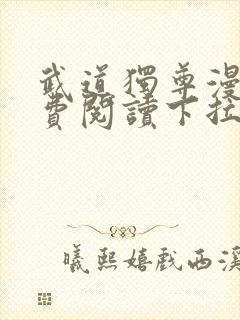 武道獨尊漫
費閱讀下拉
曦熙嬉戲西溪